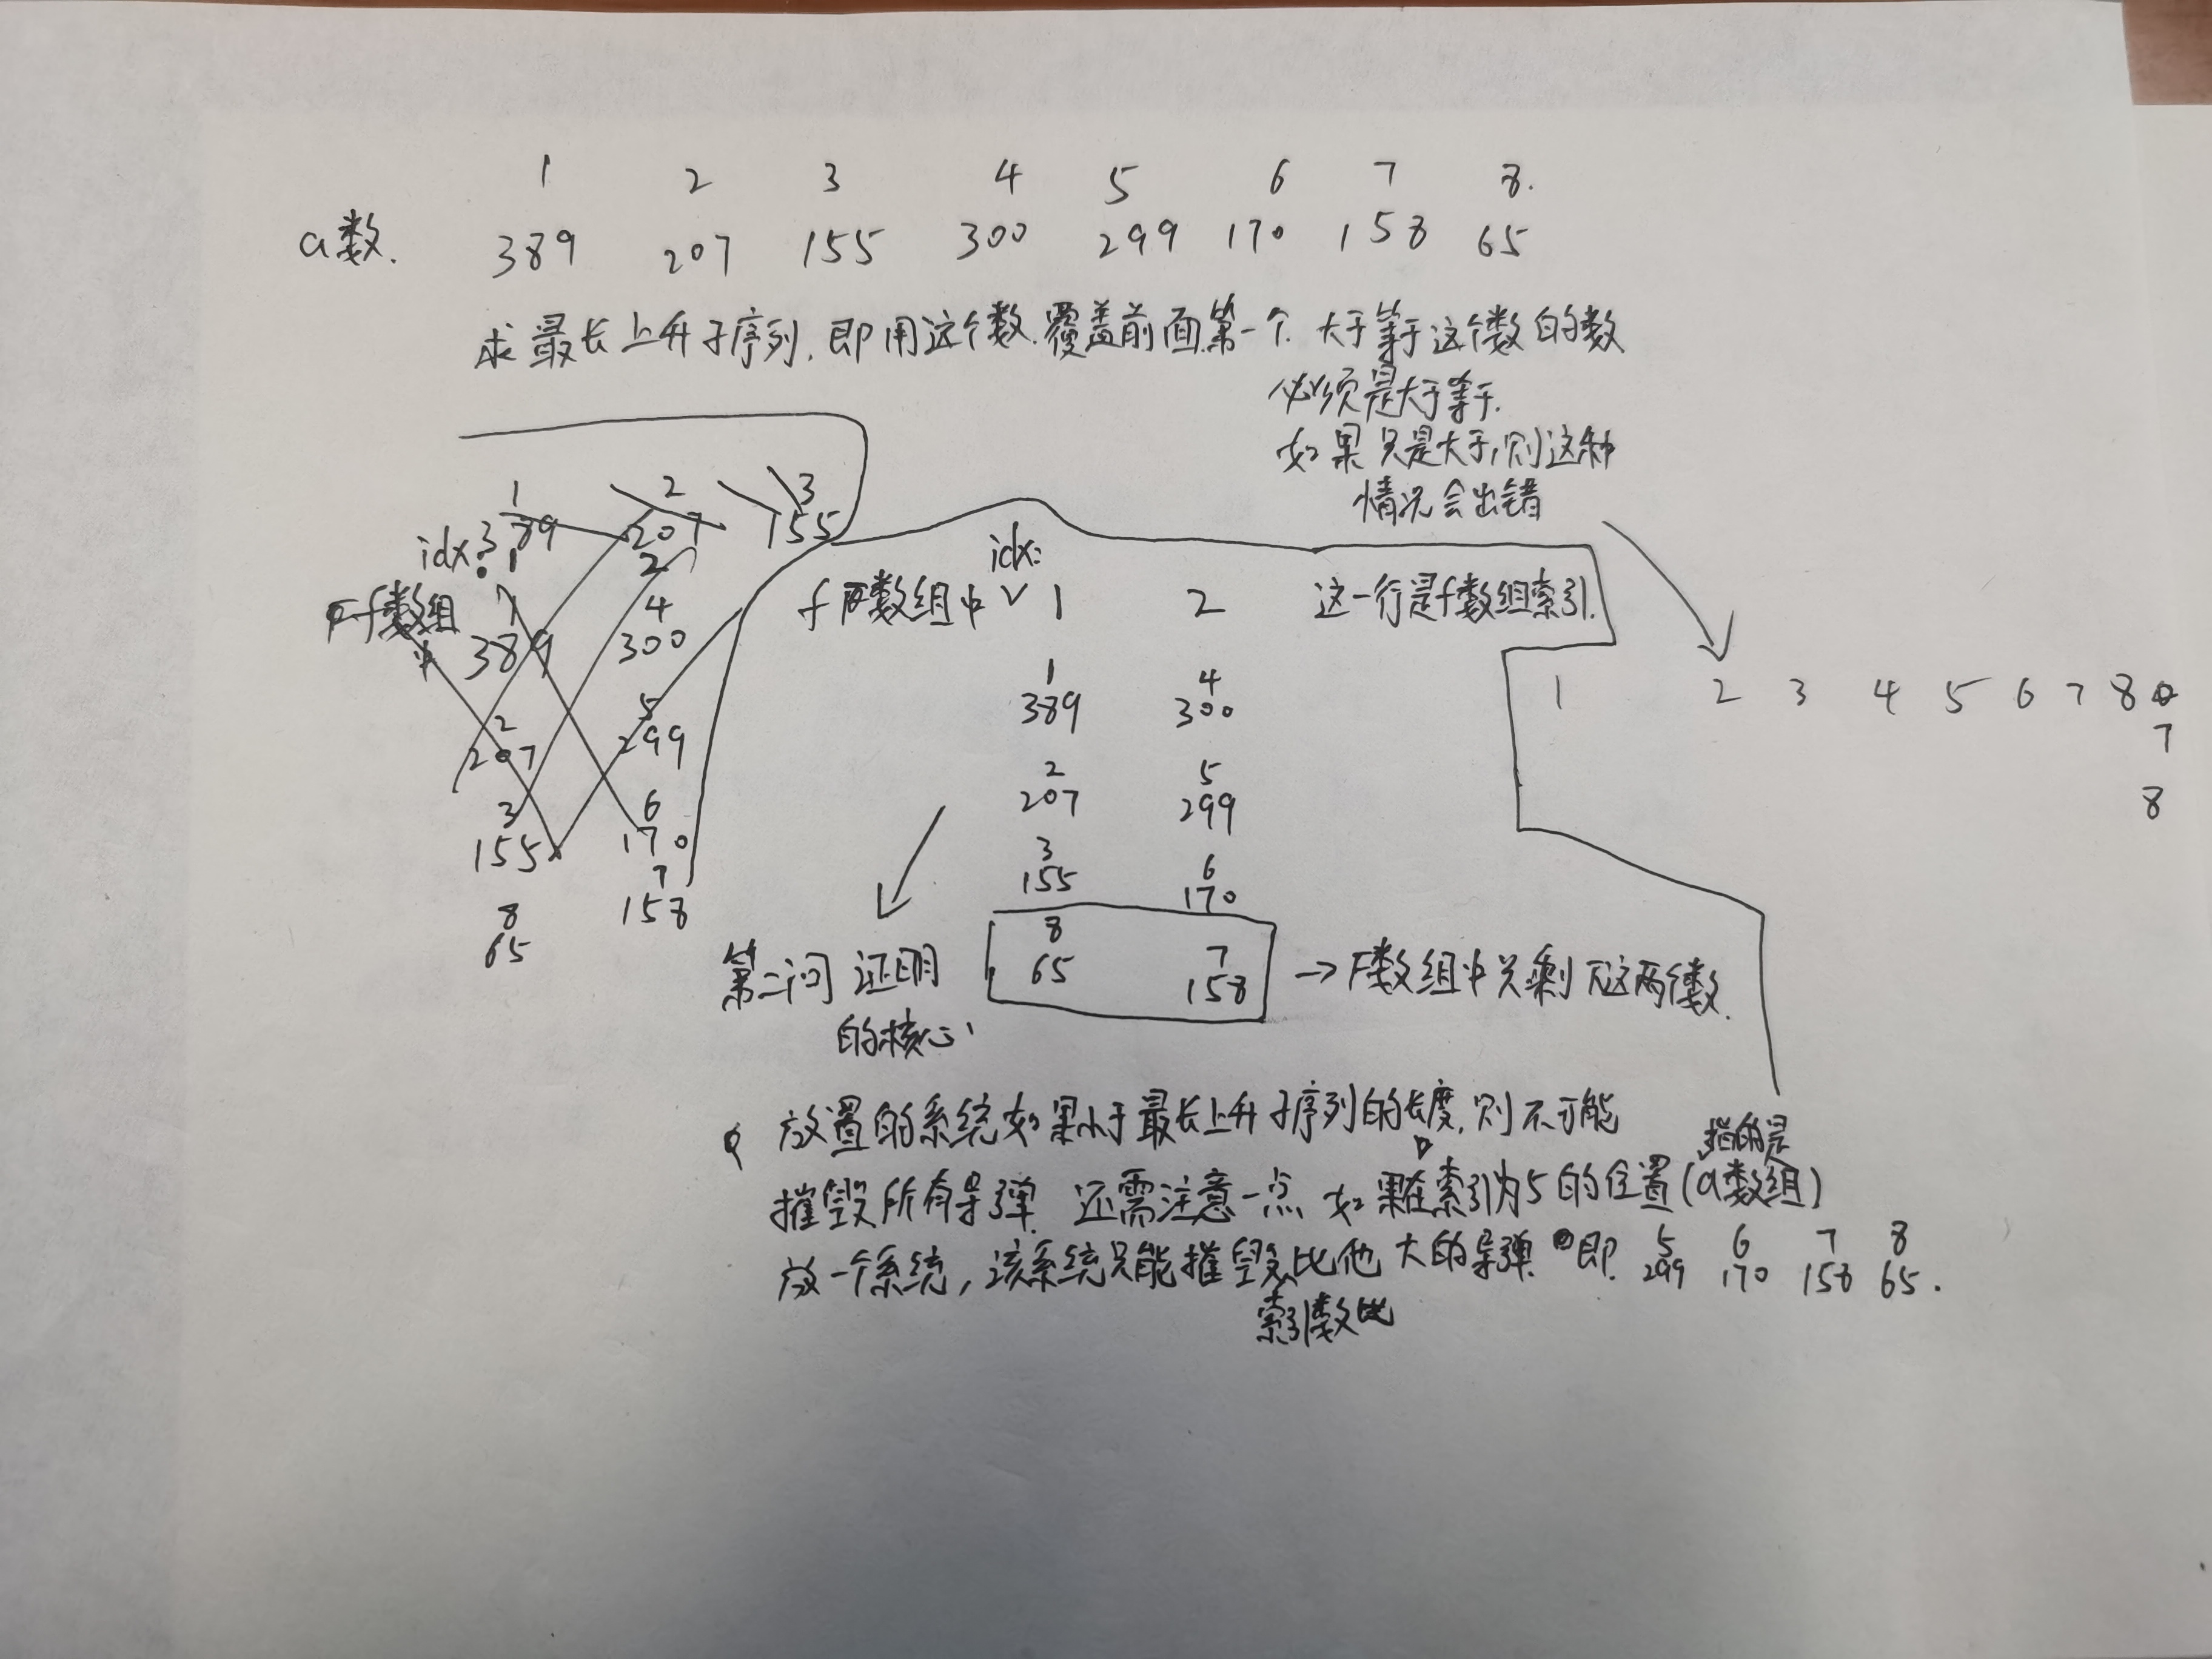 1 2 3 4 5 6 7 8.
a数. 389 207 155 300 299 170 158 65
求最长上升子序列.即用这个数.覆盖前面第一个.大于等于这个数的数
必须是大于等于.
如果只是大于,则这种
情况会出错
1 2 3
idx: 389 207 155
1 2
f数组
中
1 4
389 300
2 5
207 299
3 6
155 170
8 7
65 158
idx:
f数组中 1 2 这一行是f数组索引.
1 4
389 300
2 5
207 299
3 6
155 170
8 7
65 158 →F数组中只剩下这两个数.
1 2 3 4 5 6 7 8
7
8
第二问证明
的核心
放置的系统如果小于最长上升子序列的长度,则不可能
指的是
摧毁所有导弹.还需注意一点 如果在索引为5的位置(a数组)
5 6 7 8
放一个系统,该系统只能摧毁比他大的导弹.即. 299 170 158 65.
索引数比